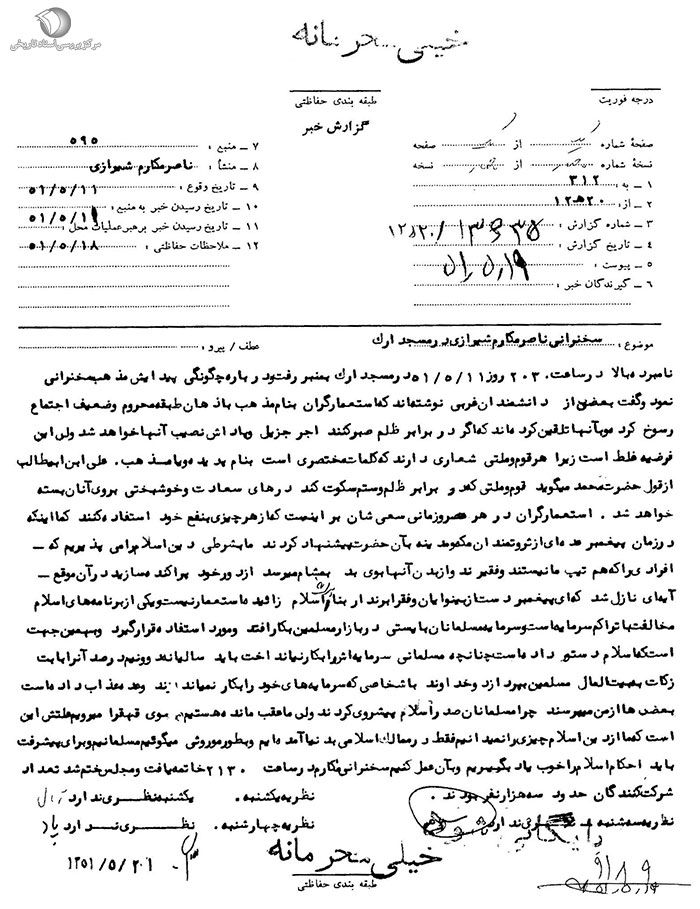 مرکز بررسی اسناد تاریخی
خیلی محرمانه
طبقه بندی حفاظتی
درجه فوریت
گزارش خبر
صفحهٔ شماره از صفحه
نسخهٔ شماره از نسخه
۱ – به : ۳۱۲
۲ – از : ۲۰ هـ ۱۲
۳ – شماره گزارش :
۴ – تاریخ گزارش :
۵ – پیوست :
۶ – گیرندگان خبر :
۷ – منبع : ۵۹۵
۸ – منشأ : ناصر مکارم شیرازی
۹ – تاریخ وقوع : ۵۱/۵/۱۱
۱۰ – تاریخ رسیدن خبر به منبع :
۱۱ – تاریخ رسیدن خبر برهبر عملیات محل :
۱۲ – ملاحظات حفاظتی : ۵۱/۵/۱۸
موضوع : سخنرانی ناصر مکارم شیرازی در مسجد ارك
عطف / پیرو :
نامبرده بالا در ساعت ۲۰۳۰ روز ۵۱/۵/۱۱ در مسجد ارك بمنبر رفت و در باره چگونگی پیدایش مذهب سخنرانی
نمود و گفت بعضی از دانشمندان غربی نوشته‌اند که استعمارگران بنام مذهب با ذهان طبقه محروم و ضعیف اجتماع
رسوخ کرده و بآنها تلقین کرده‌اند که اگر در برابر ظلم صبر کنند اجر جزیل و پاداش نصیب آنها خواهد شد ولی این
فرضیه غلط است زیرا هر قوم و ملتی شعاری دارند که کلمات مختصری است بنام پدیده و یا مذهب . علی ابن ابیطالب
از قول حضرت محمد میگوید قوم و ملتی که در برابر ظلم و ستم سکوت کند درهای سعادت و خوشبختی بروی آنان بسته
خواهد شد . استعمارگران در هر عصر و زمانی سعی شان بر اینست که از هر چیزی بنفع خود استفاده کنند کما اینکه
در زمان پیغمبر عده‌ای از ثروتمندان مکه و مدینه بآن حضرت پیشنهاد کردند ما بشرطی دین اسلام را می پذیریم که –
افرادی را که هم تیپ ما نیستند و فقیرند و از بدن آنها بوی بد بمشام میرسد از دور خود پراکنده سازید در آن موقع –
آیه‌ای نازل شد که ای پیغمبر دست از بینوایان و فقرا بر ندار بنابراین اسلام زائیده استعمار نیست و یکی از برنامه‌های اسلام
مخالفت با تراکم سرمایه است و سرمایه مسلمانان بایستی در بازار مسلمین بکار افتد و مورد استفاده قرار گیرد و بهمین جهت
است که اسلام دستور داده است چنانچه مسلمانی سرمایه‌اش را بکار نیانداخت باید سالیانه دو و نیم درصد آنرا بابت
زکات به بیت المال مسلمین بپردازد و خداوند با شخاصی که سرمایه‌های خود را بکار نمیاندازند وعده عذاب داده است
بعضی ها از من میپرسند چرا مسلمانان صدر اسلام پیشروی کردند ولی ما عقب مانده هستیم و بسوی قهقرا میرویم علتش این
است که ما از دین اسلام چیزی را نمیدانیم فقط در ممالك اسلامی بدنیا آمده‌ایم و بطور موروثی میگوئیم مسلمانیم و برای پیشرفت
باید احکام اسلام را خوب یاد بگیریم و بآن عمل کنیم سخنرانی مکارم در ساعت ۲۱۳۰ خاتمه یافت و مجلس ختم شد تعداد
شرکت کنندگان حدود سه هزار نفر بودند .
نظریه یکشنبه . یکشنبه نظری ندارد
نظریه سه شنبه . نظری ندارد
نظریه چهارشنبه . نظری ندارد
خیلی محرمانه
طبقه بندی حفاظتی
۱۳۵۱/۵/۲۱